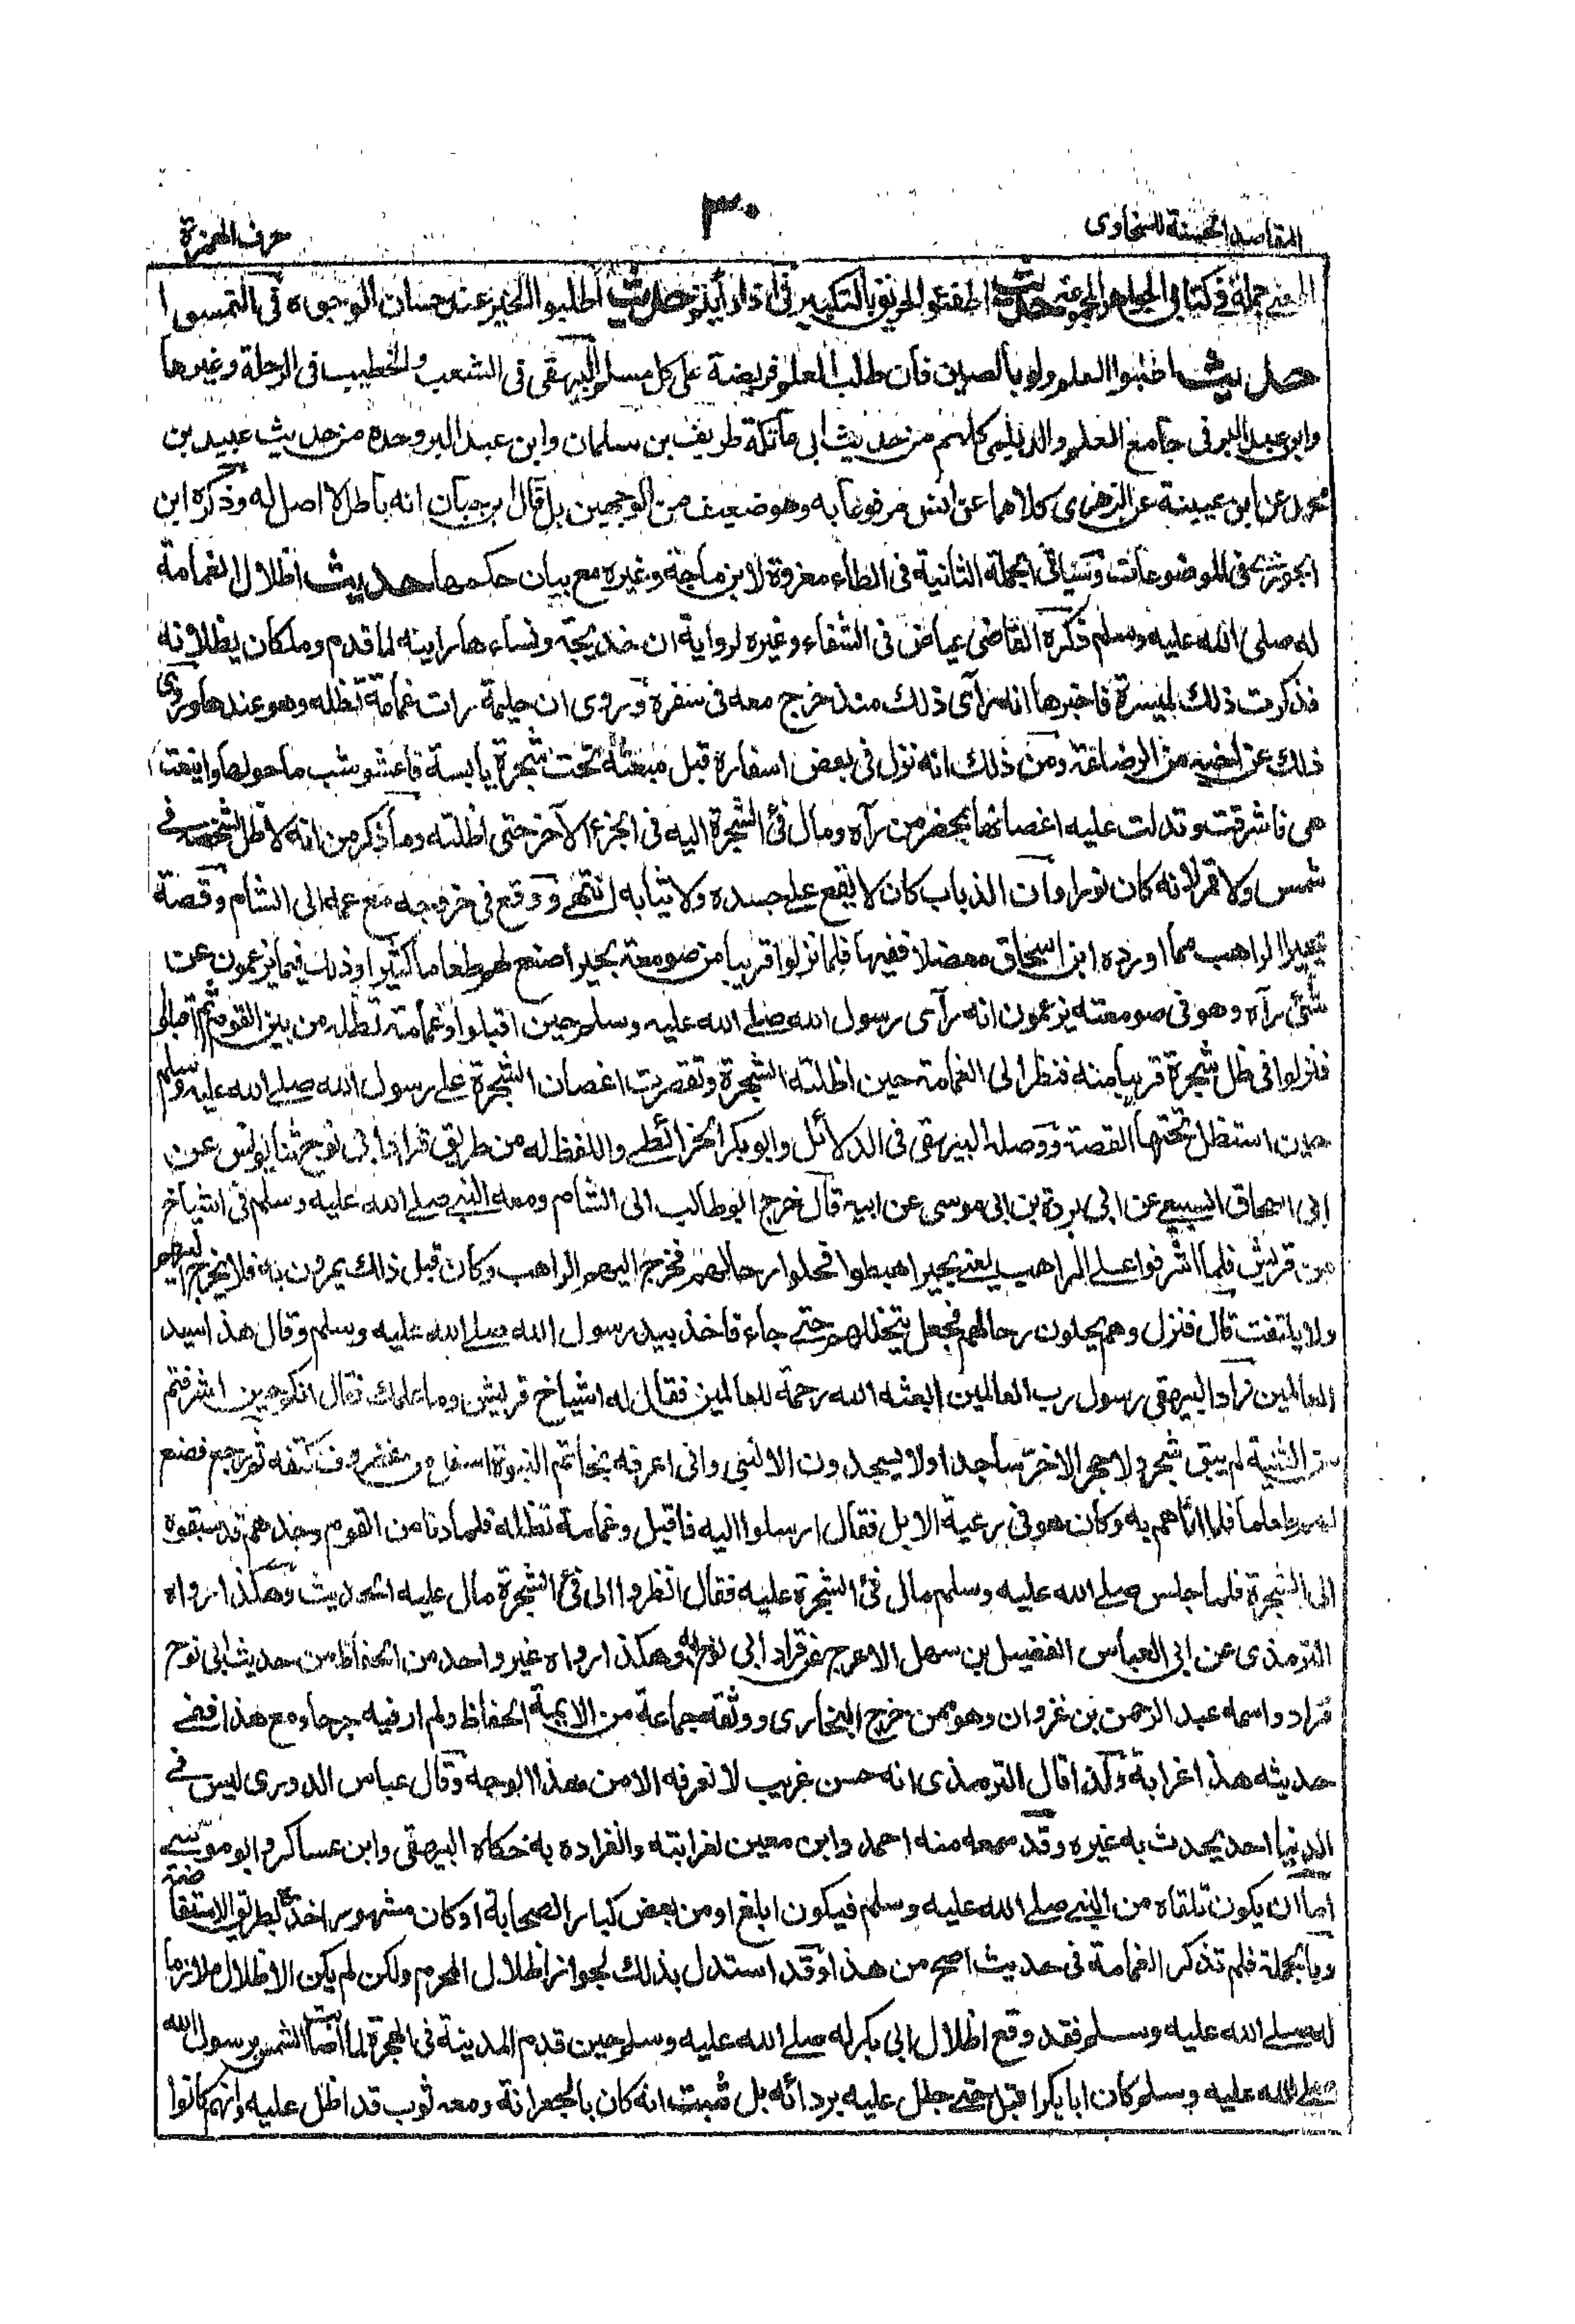 المقاصد الحسنة للسخاوى
٣٠
حرف الهمزة
المعنى جملة فى كتابى الجواهر المجموعة حديث اطفئوا الحريق بالتكبير فى اذا رأيتم حديث اطلبوا الخير عند حسان الوجوه فى التمسوا
حديث اطلبوا العلم ولو بالصين فان طلب العلم فريضة على كل مسلم البيهقى فى الشعب والخطيب فى الرحلة وغيرها
وابن عبد البر فى جامع العلم والديلمى كلهم من حديث ابى عاتكة طريف بن سلمان وابن عبد البر وحده من حديث عبيد بن
محمد عن ابن عيينة عن الزهرى كلاهما عن انس مرفوعا به وهو ضعيف من الوجهين بل قال ابن حبان انه باطل لا اصل له وذكره ابن
الجوزى فى الموضوعات وستأتى الجملة الثانية فى الطاء معزوة لابن ماجة وغيره مع بيان حكمها حديث اظلال الغمامة
له صلى الله عليه وسلم ذكره القاضى عياض فى الشفاء وغيره لرواية ان خديجة ونساءها راينه لما قدم وملكان يظلانه
فذكرت ذلك لميسرة فاخبرها انه رآى ذلك منذ خرج معه فى سفره وروى ان حليمة رات غمامة تظله وهو عندها وروى
ذلك عن اخيه من الرضاعة ومن ذلك انه نزل فى بعض اسفاره قبل مبعثه تحت شجرة يابسة فاعشوشب ما حولها واينعت
هى فاشرقت وتدلت عليه اغصانها بمحضر من رآه ومال فئ الشجرة اليه فى الجزء الآخر حتى اظلته وما ذكر من انه لا ظل لشخصه فى
شمس ولا قمر لانه كان نورا وان الذباب كان لا يقع على جسده ولا ثيابه انتهى ووقع فى خروجه مع عمه الى الشام وقصة
بحيرا الراهب مما اورده ابن اسحاق معضلا ففيها فلما نزلوا قريبا من صومعة بحيرا صنع لهم طعاما كثيرا وذلك فيما يزعمون عن
شئ رآه وهو فى صومعته يزعمون انه رآى رسول الله صلى الله عليه وسلم حين اقبلوا وغمامة تظله من بين القوم ثم اقبلوا
فنزلوا فى ظل شجرة قريبا منه فنظر الى الغمامة حين اظلته الشجرة وتقصرت اغصان الشجرة على رسول الله صلى الله عليه وسلم
حين استظل تحتها القصة ووصله البيهقى فى الدلائل وابو بكر الخرائطى واللفظ له من طريق قراد ابى نوح ثنا يونس عن
ابى اسحاق السبيعى عن ابى بردة بن ابى موسى عن ابيه قال خرج ابو طالب الى الشام ومعه النبى صلى الله عليه وسلم فى اشياخ
من قريش فلما اشرفوا على الراهب يعنى بحيرا هبطوا فحلوا رحالهم فخرج اليهم الراهب وكان قبل ذلك يمرون به فلا يخرج اليهم
ولا يلتفت قال فنزل وهم يحلون رحالهم فجعل يتخللهم حتى جاء فاخذ بيد رسول الله صلى الله عليه وسلم وقال هذا سيد
العالمين زاد البيهقى رسول رب العالمين ابعثه الله رحمة للعالمين فقال له اشياخ قريش وما علمك فقال انكم حين اشرفتم
من الثنية لم يبق شجر ولا حجر الا خر ساجدا ولا يسجدون الا لنبى وانى اعرفه بخاتم النبوة اسفل من غضروف كتفه ثم رجع فصنع
لهم طعاما فلما اتاهم به وكان هو فى رعية الابل فقال ارسلوا اليه فاقبل وغمامة تظله فلما دنا من القوم وجدهم قد سبقوه
الى الشجرة فلما جلس صلى الله عليه وسلم مال فئ الشجرة عليه فقال انظروا الى فئ الشجرة مال عليه الحديث وهكذا رواه
الترمذى عن ابى العباس الفضيل بن سهل الاعرج عن قراد ابى نوح به وهكذا رواه غير واحد من الحفاظ من حديث ابى نوح
قراد واسمه عبد الرحمن بن غزوان وهو ممن خرج البخارى ووثقه جماعة من الايمة الحفاظ ولم ار فيه جرحا ومع هذا ففى
حديثه هذا غرابة وكذا قال الترمذى انه حسن غريب لا نعرفه الا من هذا الوجه وقال عباس الدورى ليس فى
الدنيا احد يحدث به غيره وقد سمعه منه احمد وابن معين لغرابته وانفراده به حكاه البيهقى وابن عساكر وابو موسى
اما ان يكون تلقاه من النبى صلى الله عليه وسلم فيكون ابلغ او من بعض كبار الصحابة او كان مشهورا اخذه بطريق الاستفاضة
وبالجملة فلم تذكر الغمامة فى حديث اصح من هذا وقد استدل بذلك لجواز اظلال المحرم ولكن لم يكن الاظلال ملازما
له صلى الله عليه وسلم فقد وقع اظلال ابى بكر له صلى الله عليه وسلم حين قدم المدينة فى الهجرة لما اصابت الشمس رسول الله
صلى الله عليه وسلم كان ابا بكر اقبل حتى ظلل عليه بردائه بل ثبت انه كان بالجعرانة ومعه ثوب قد اظل عليه وانهم كانوا